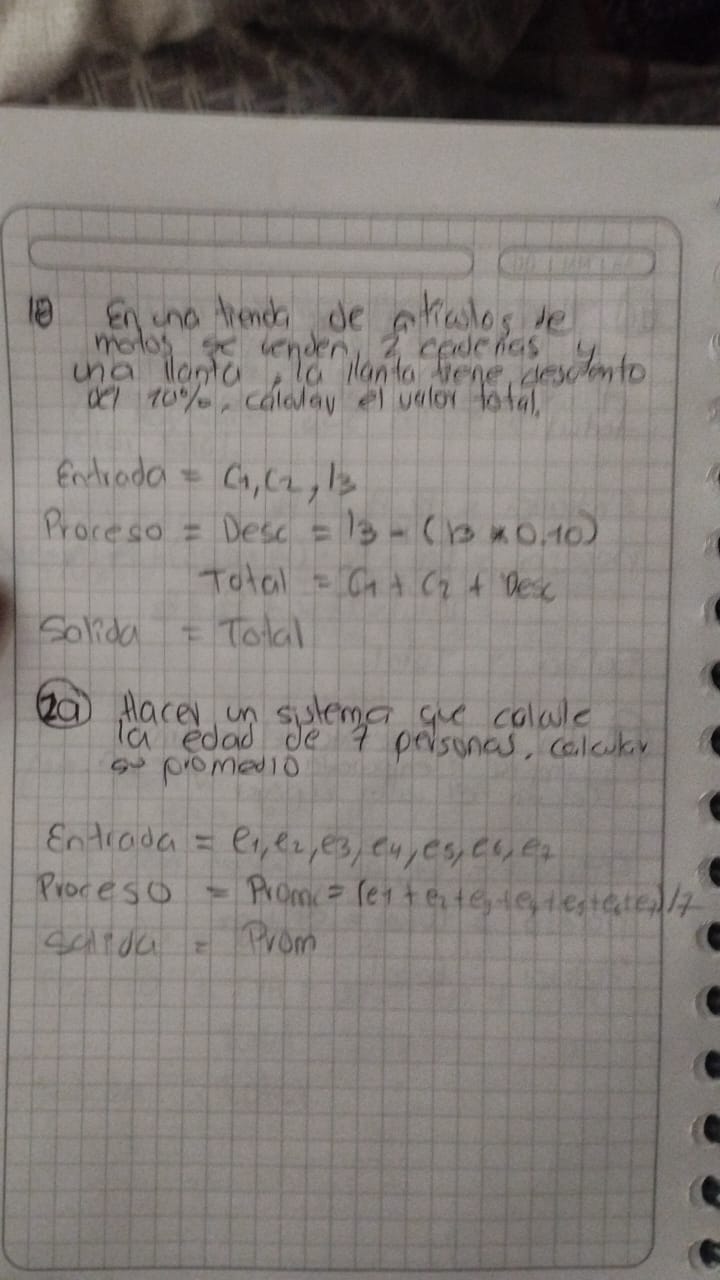 1a En una tienda de articulos de
motos se venden 2 cadenas y
una llanta, la llanta tiene descuento
del 10%, calcular el valor total.
Entrada = C1, C2, l3
Proceso = Desc = l3 - (l3 * 0.10)
Total = C1 + C2 + Desc
Salida = Total
2a Hacer un sistema que calcule
la edad de 7 personas, calcular
su promedio
Entrada = e1, e2, e3, e4, e5, e6, e7
Proceso = Prom = (e1 + e2 + e3 + e4 + e5 + e6 + e7) / 7
Salida = Prom